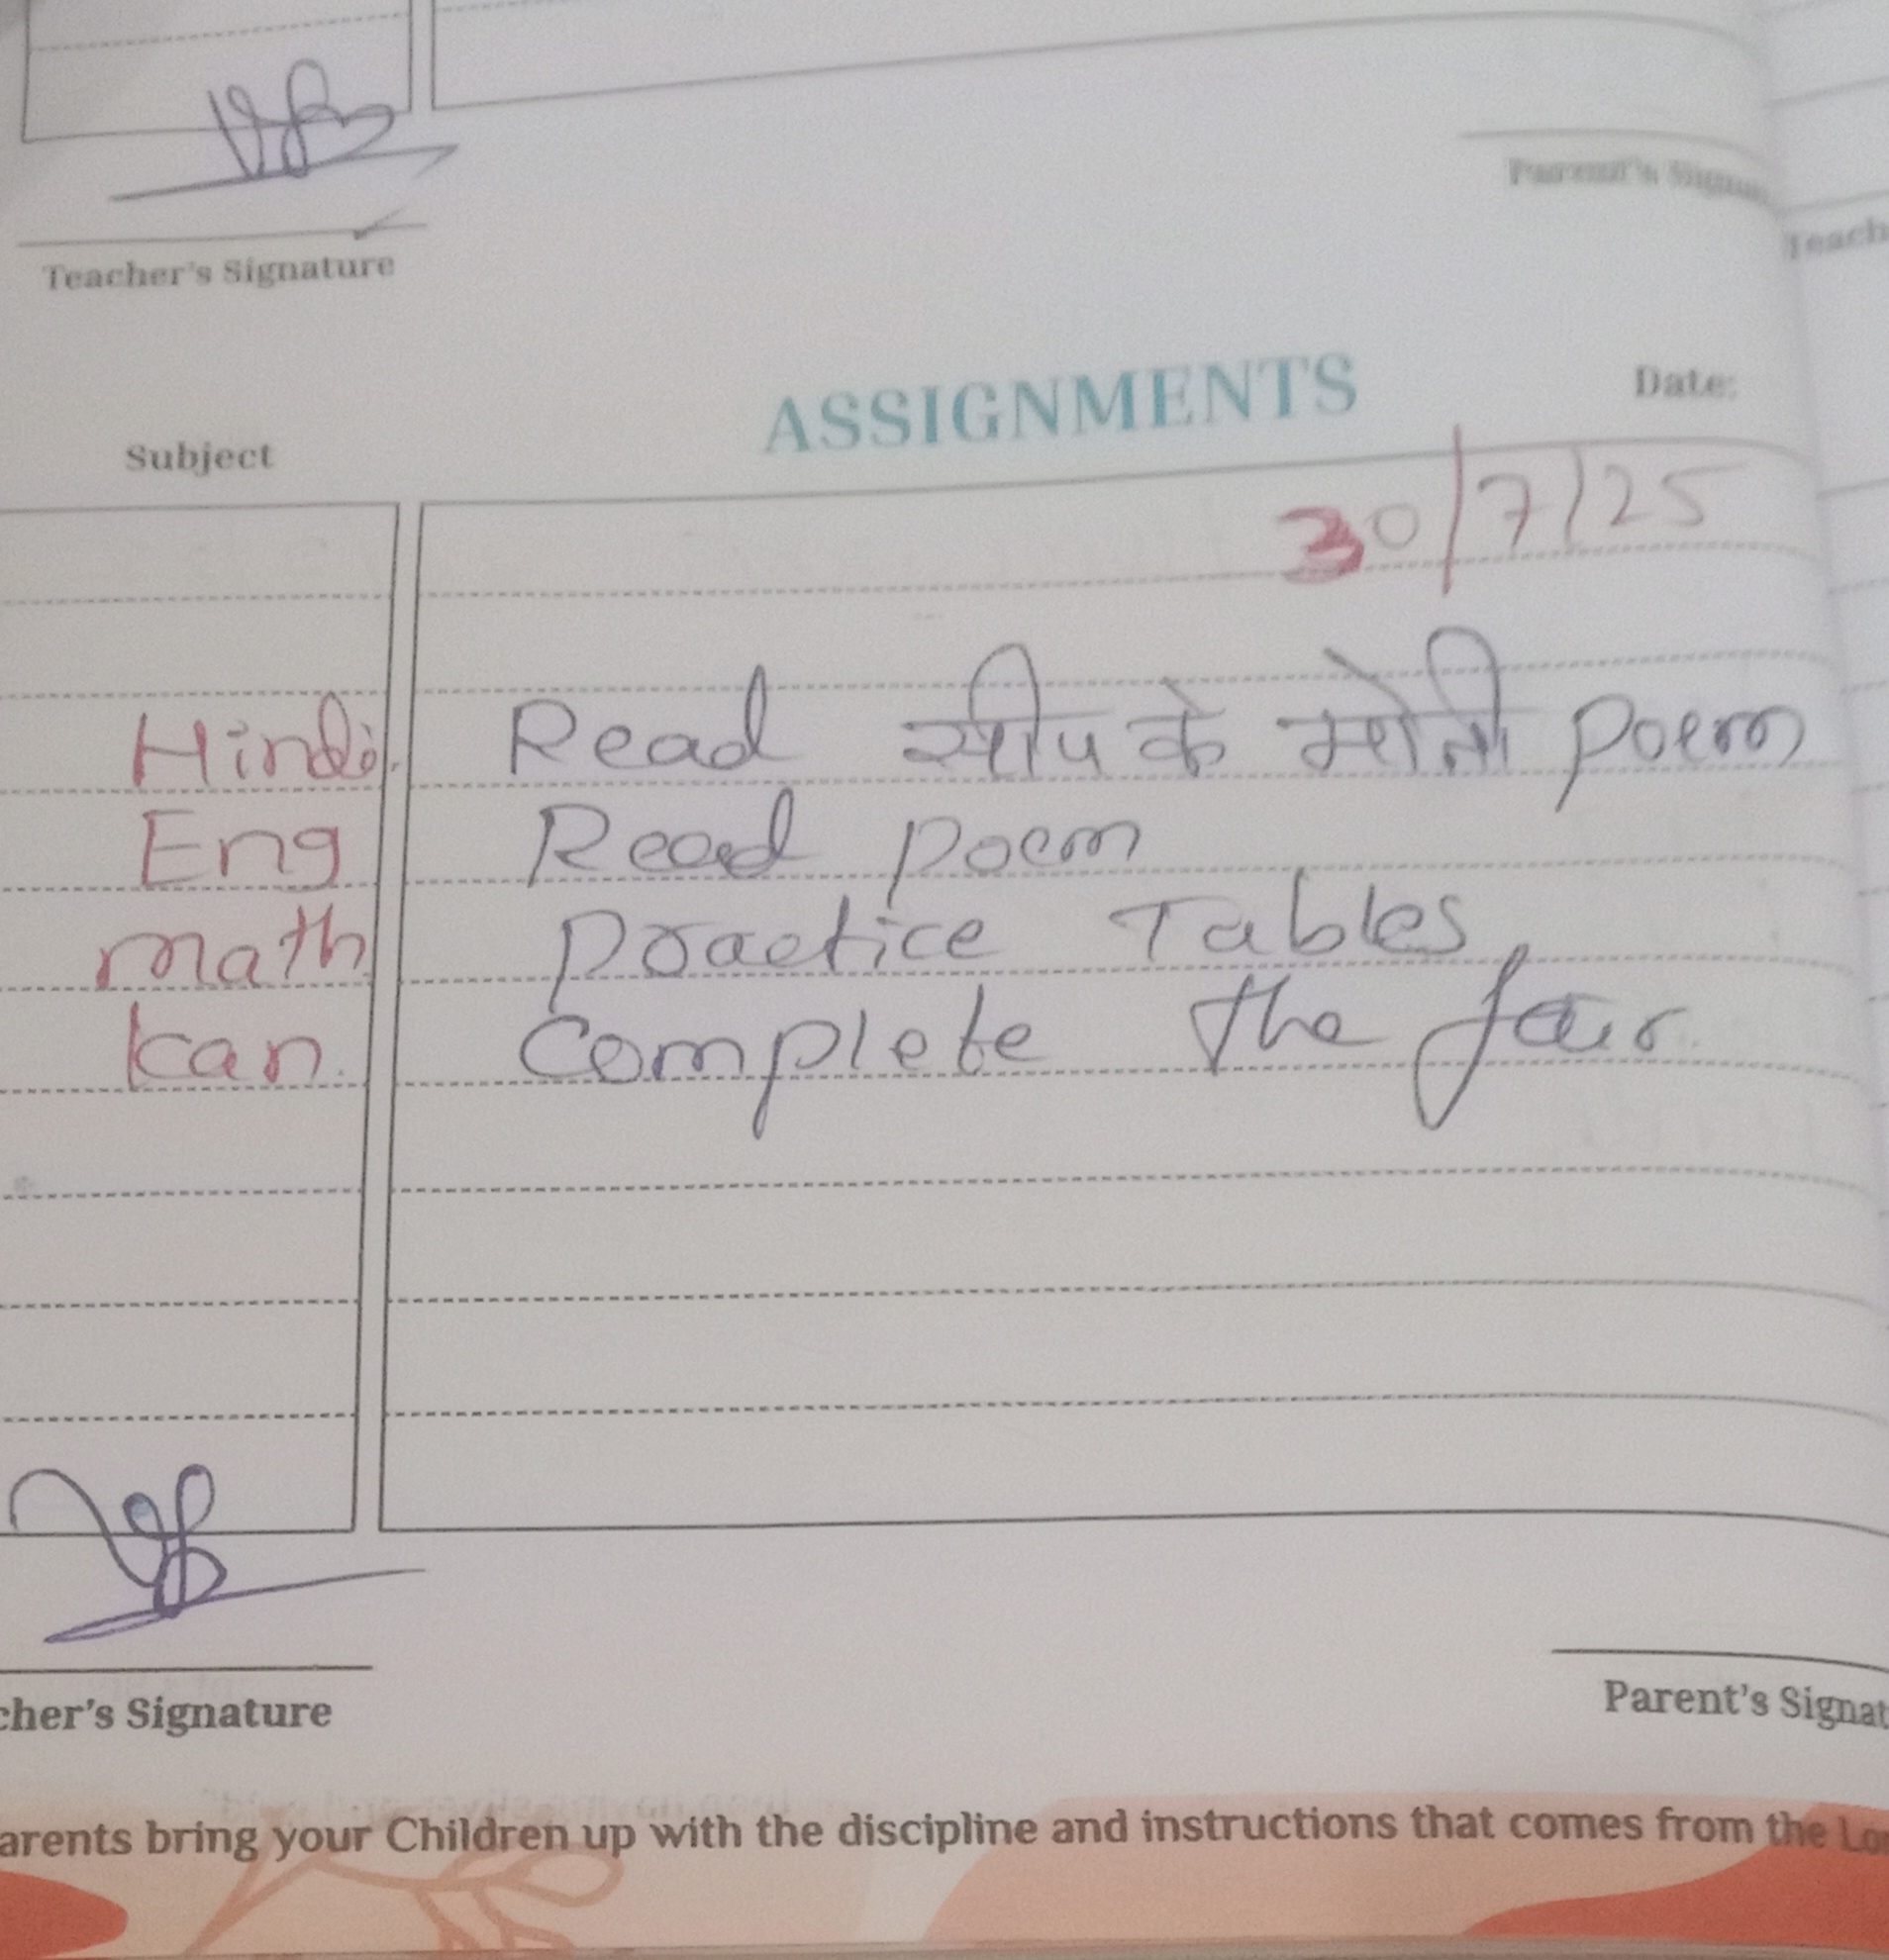 Parent's
Teacher's Signature
Teach
ASSIGNMENTS
Date:
Subject
30/7/25
Hindi. Read सीप के मोती poem
Eng Read poem
math practice Tables
kan. Complete the fair
cher's Signature
Parent's Signat
arents bring your Children up with the discipline and instructions that comes from the Lor